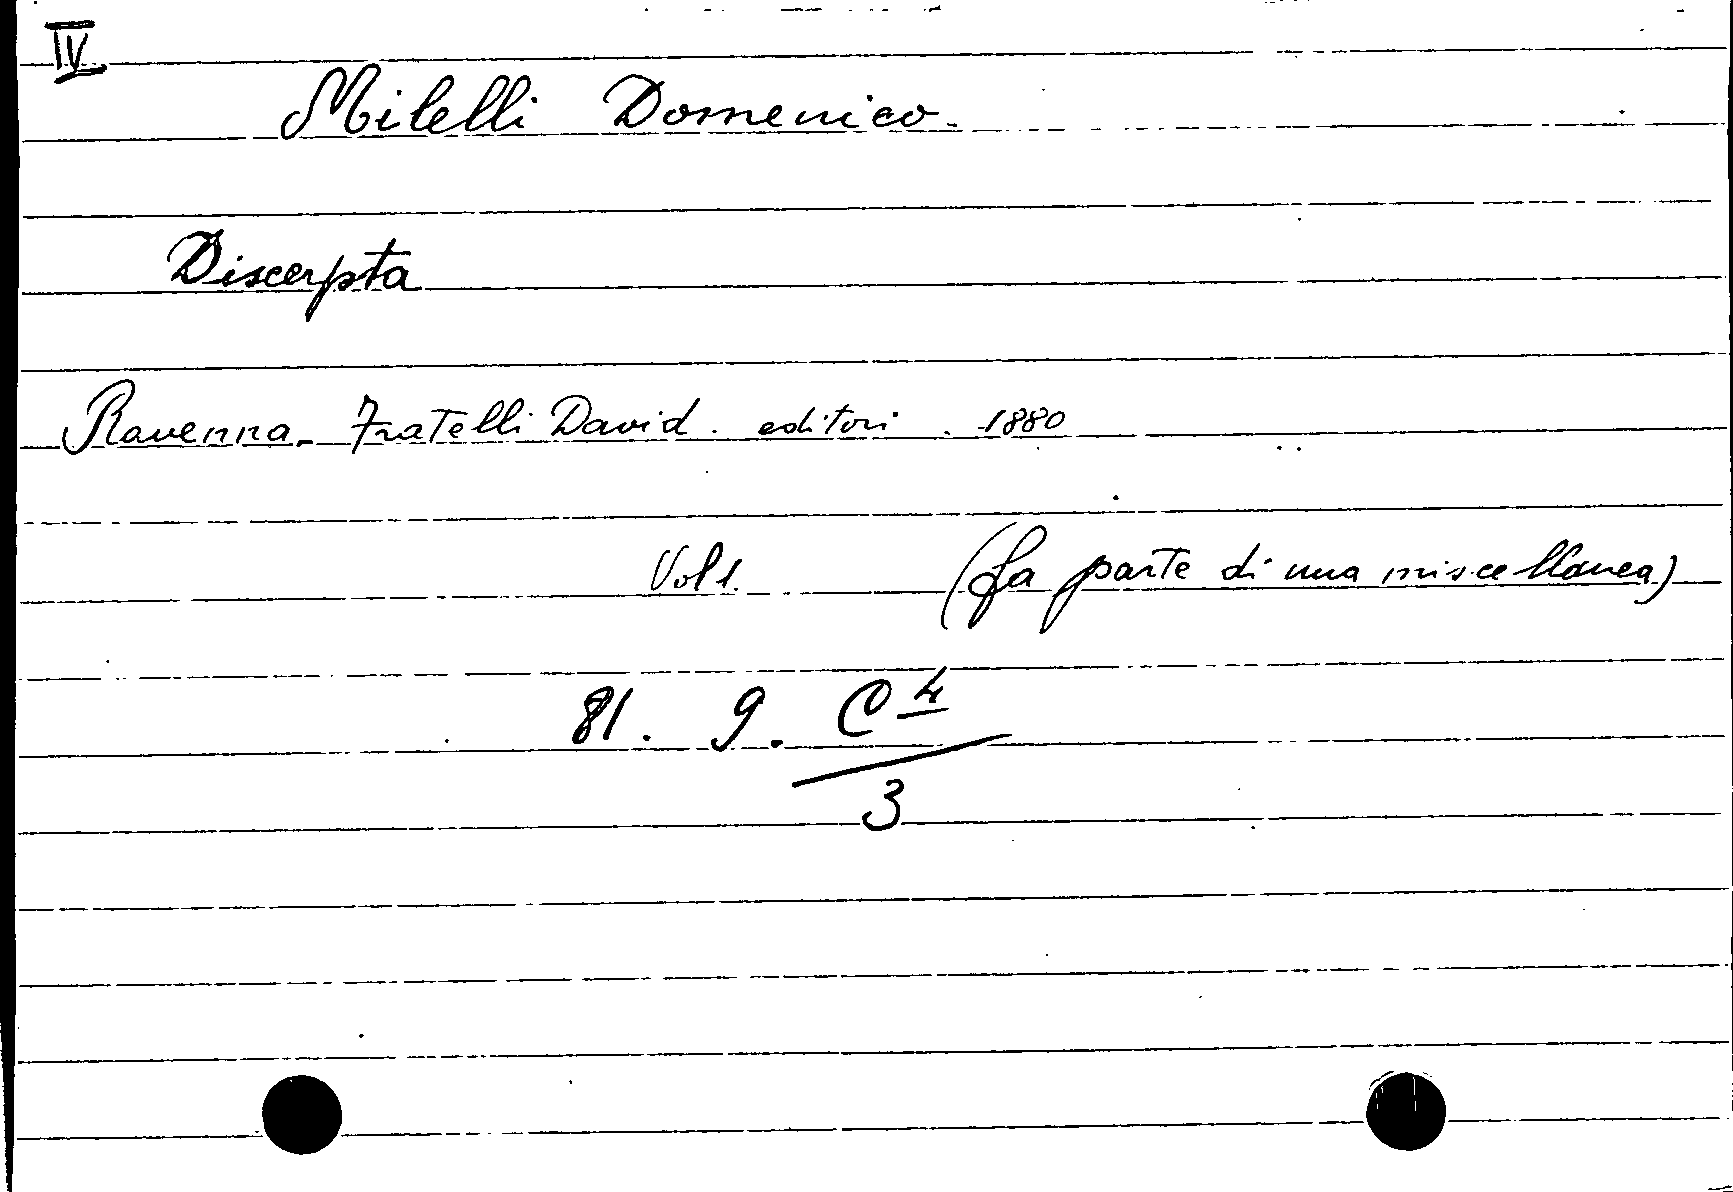 IV
Milelli Domenico.
Discerpta
Ravenna - Fratelli David. editori. 1880
Vol 1. (fa parte di una miscellanea)
81. 9. C 4
3